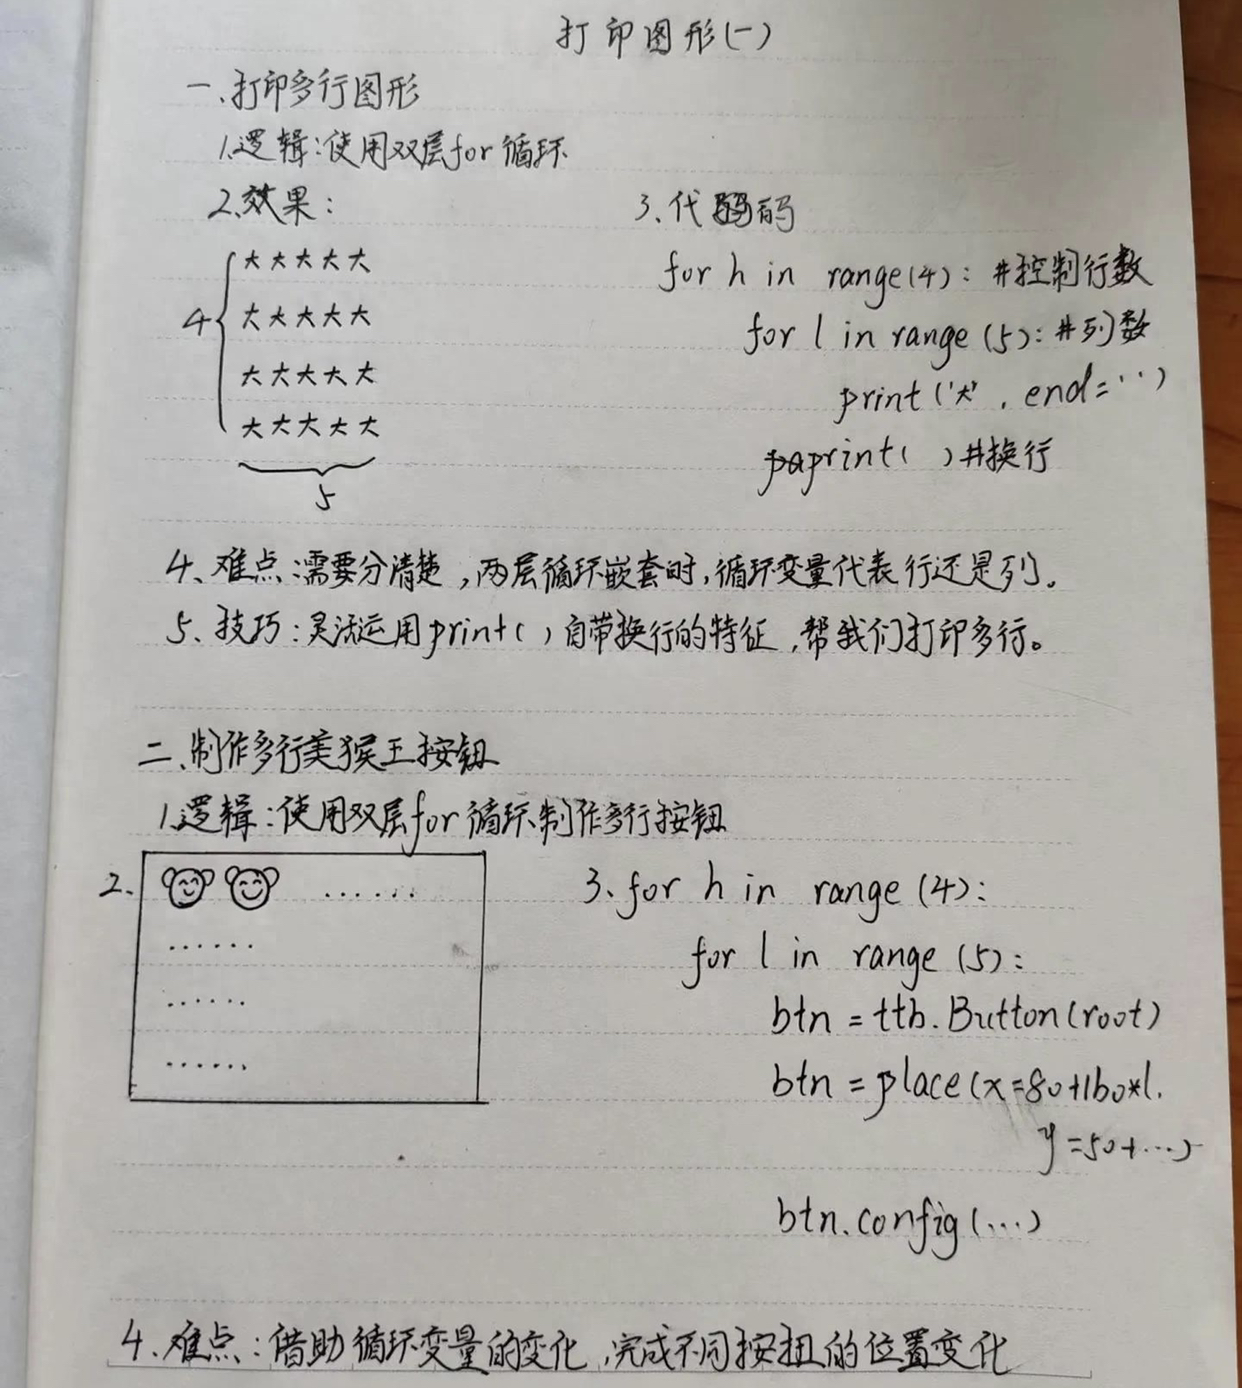 打印图形(一)
一、打印多行图形
1.逻辑:使用双层for循环
2、效果:
大大大大大
4 大大大大大
大大大大大
大大大大大
5
3、代码
for h in range(4): #控制行数
for l in range(5): #列数
print('大', end='')
print( ) #换行
4、难点:需要分清楚,两层循环嵌套时,循环变量代表行还是列。
5、技巧:灵活运用print( )自带换行的特征,帮我们打印多行。
二、制作多行美猴王按钮
1.逻辑:使用双层for循环制作多行按钮
2、
......
......
......
......
3、for h in range(4):
for l in range(5):
btn = ttb.Button(root)
btn = place(x=80+160*l,
y=50+...)
btn.config(...)
4、难点:借助循环变量的变化,完成不同按扭的位置变化